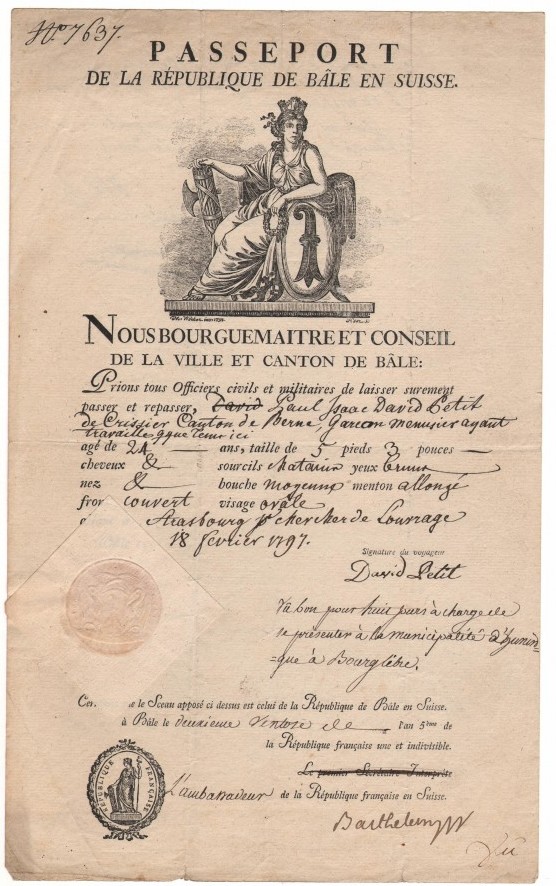 No. 7637.
PASSEPORT
DE LA RÉPUBLIQUE DE BÂLE EN SUISSE.
NOUS BOURGUEMAITRE ET CONSEIL
DE LA VILLE ET CANTON DE BÂLE:
Prions tous Officiers civils et militaires de laisser surement
passer et repasser, David Paul Isaac David Petit
de Crissier Canton de Berne, Garcon menusier ayant
travaillé qque tems ici
agé de 24 — ans, taille de 5 pieds 3 pouces —
cheveux & — sourcils chatains yeux bruns
nez & — bouche moyenne menton allongé
fron couvert visage ovale
a Strasbourg pr chercher de Louvrage
18 fevrier 1797.
Signature du voyageur
David Petit
Vû bon pour huit jours à charge de
se présenter à la municipalité d'hunin-
gue à Bourglibre.
Cer e le Sceau apposé ci dessus est celui de la République de Bâle en Suisse.
à Bâle le deuxieme Ventose de l'an 5ème de
la République française une et indivisible.
Le premier Secrétaire Interprète
L'ambassadeur de la République française en Suisse.
RÉPUBLIQUE FRANÇAISE
Barthelemy